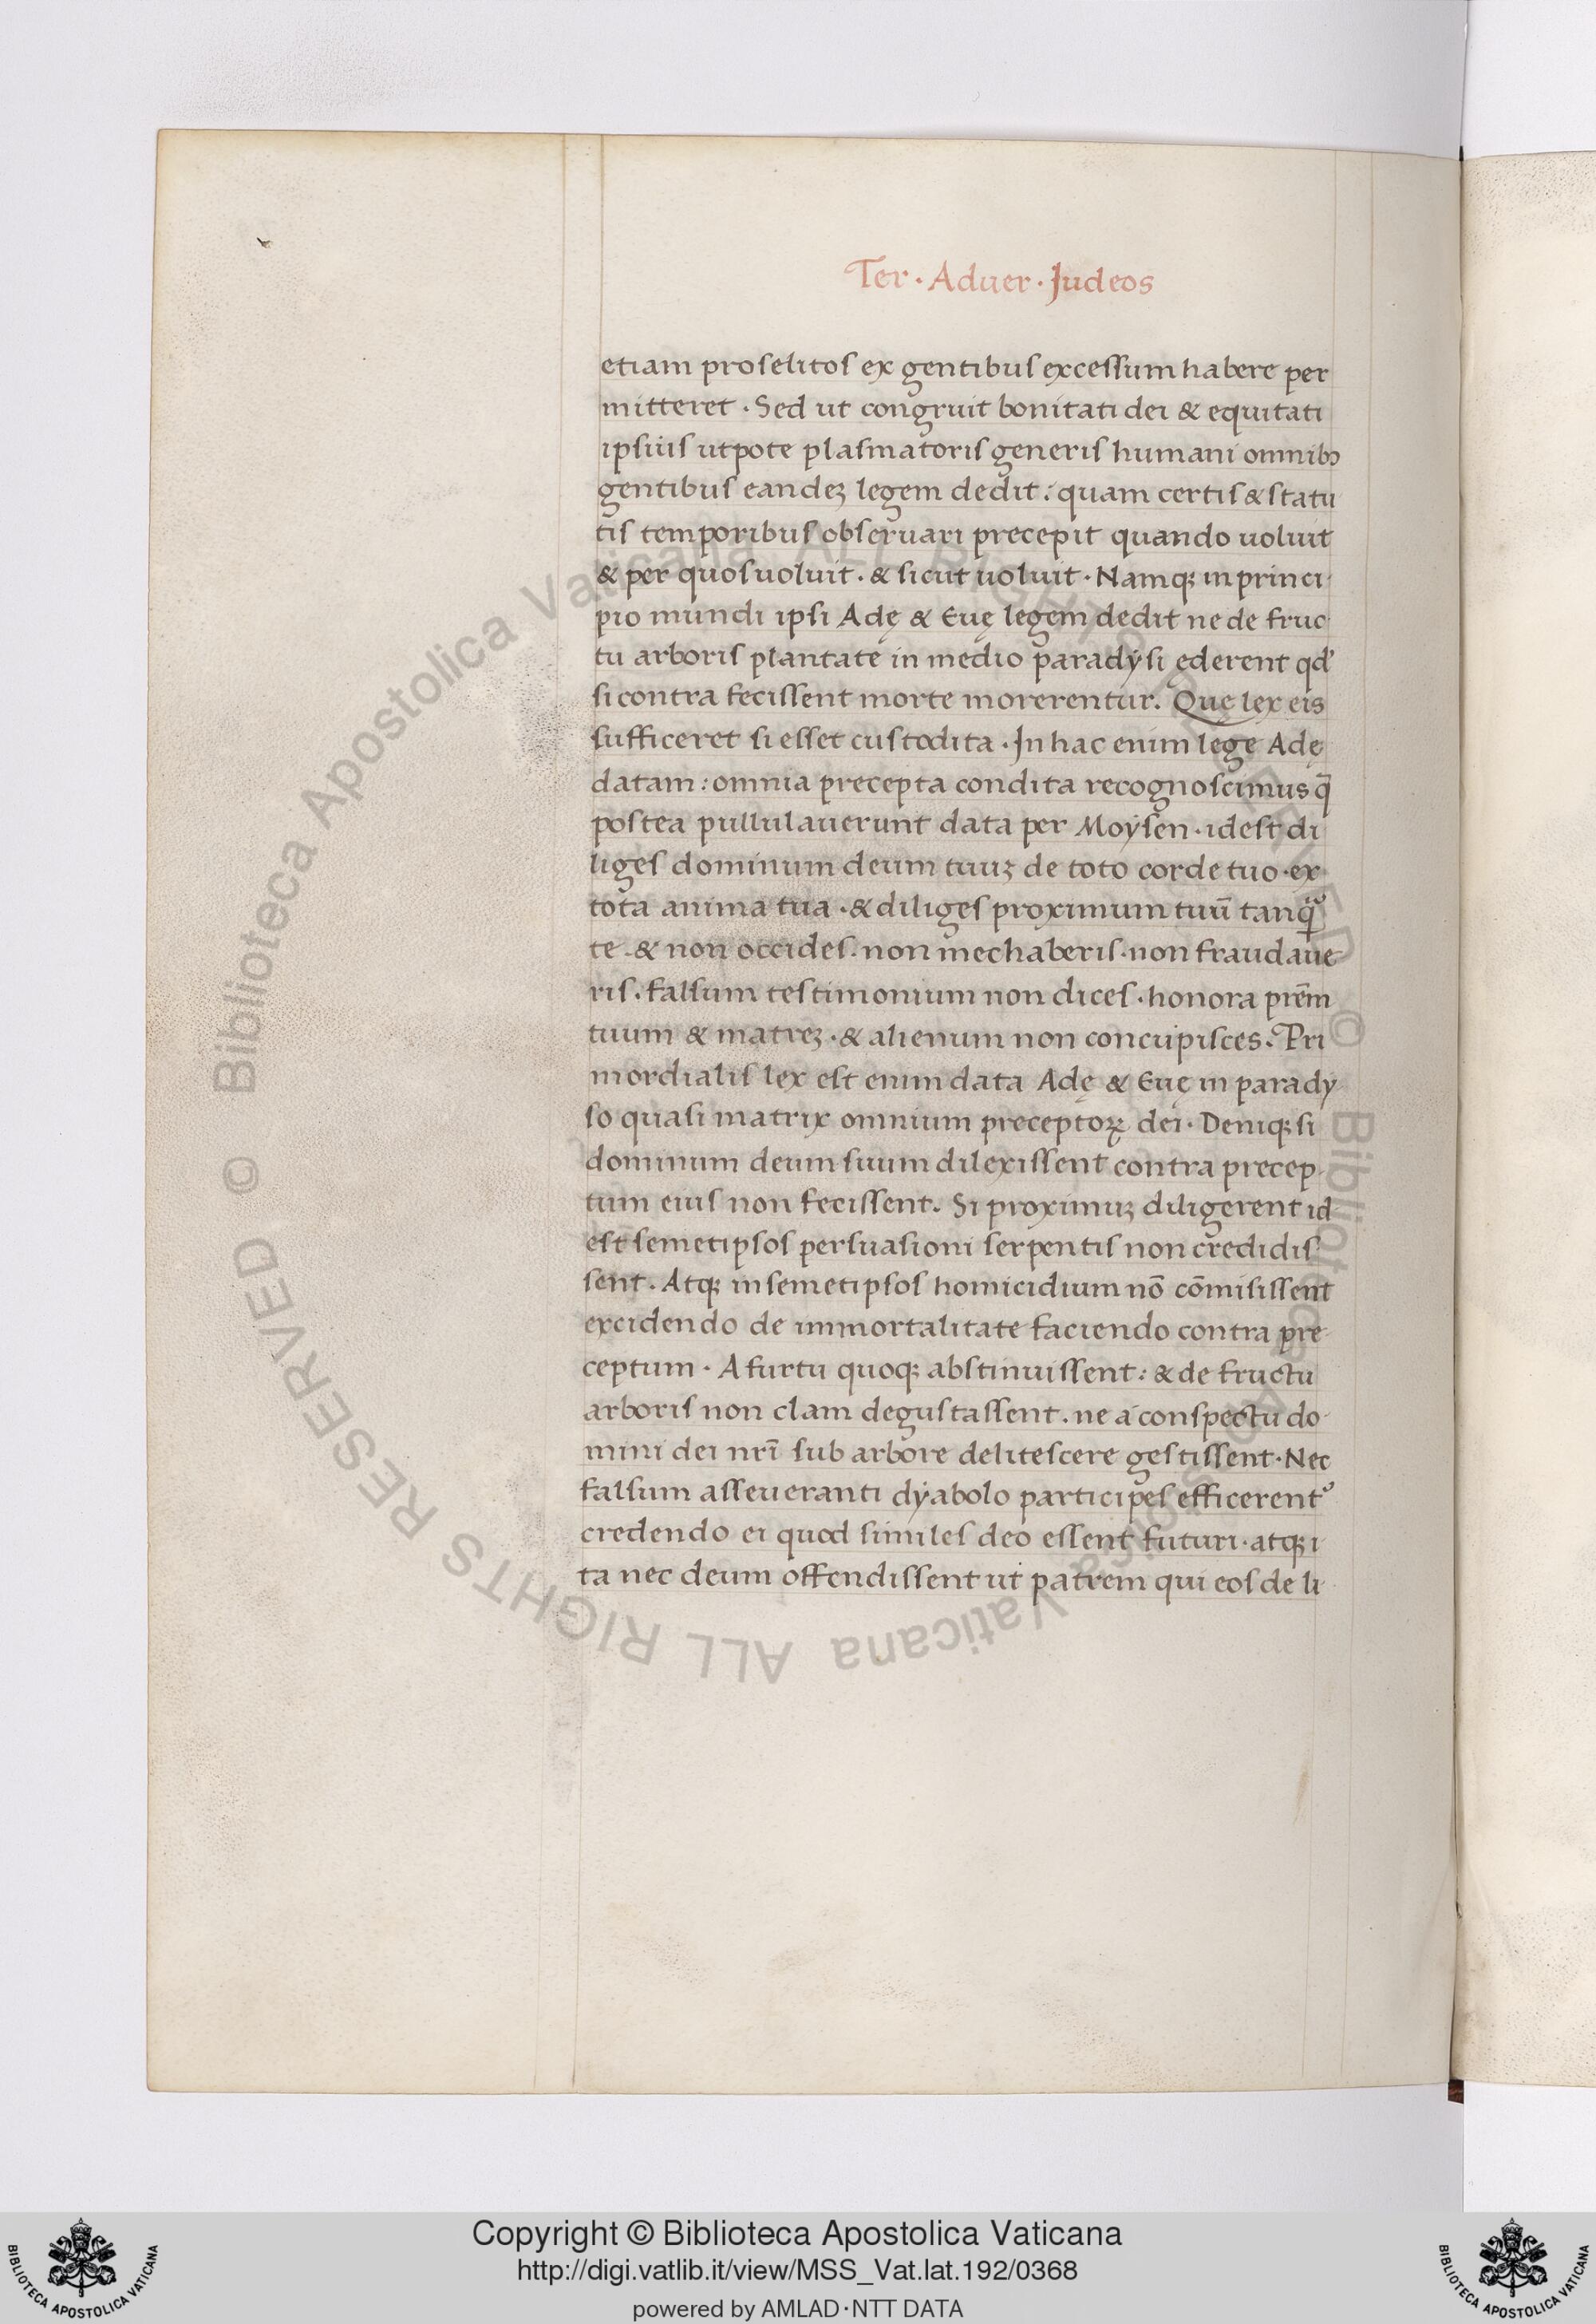 Ter · Aduer · Judeos
etiam proselitos ex gentibus excessum habere per
mitteret · Sed ut congruit bonitati dei & equitati
ipsius utpote plasmatoris generis humani omnibꝫ
gentibus eandeꝫ legem dedit : quam certis & statu
tis temporibus obseruari precepit quando uoluit
& per quos uoluit · & sicut uoluit · Namqꝫ in princi
pio mundi ipsi Adę & Euę legem dedit ne de fruc
tu arboris plantate in medio paradysi ederent qd'
si contra fecissent morte morerentur. Quę lex eis
sufficeret si esset custodita · In hac enim lege Adę
datam : omnia precepta condita recognoscimus q̄
postea pullulauerunt data per Moysen · idest di
liges dominum deum tuuꝫ de toto corde tuo · ex
tota anima tua · & diliges proximum tuū tanqꝫ
te · & non occides · non mechaberis · non fraudaue
ris · falsum testimonium non dices · honora prēm
tuum & matreꝫ · & alienum non concupisces. Pri
mordialis lex est enim data Adę & Euę in parady
so quasi matrix omnium preceptoꝝ dei · Deniqꝫ si
dominum deum suum dilexissent contra precep
tum eius non fecissent. Si proximuꝫ diligerent id
est semetipsos persuasioni serpentis non credidis
sent · Atqꝫ in semetipsos homicidium nō cōmisissent
excidendo de immortalitate faciendo contra pre
ceptum · A furtu quoqꝫ abstinuissent : & de fructu
arboris non clam degustassent · ne a conspectu do
mini dei nrī sub arbore delitescere gestissent · Nec
falsum asseueranti dyabolo participes efficerent᾿
credendo ei quod similes deo essent futuri · atqꝫ i
ta nec deum offendissent ut patrem qui eos de li
© Biblioteca Apostolica Vaticana ALL RIGHTS RESERVED © Biblioteca Apostolica Vaticana ALL RIGHTS RESERVED
Copyright © Biblioteca Apostolica Vaticana
http://digi.vatlib.it/view/MSS_Vat.lat.192/0368
powered by AMLAD·NTT DATA
BIBLIOTECA APOSTOLICA VATICANA
BIBLIOTECA APOSTOLICA VATICANA